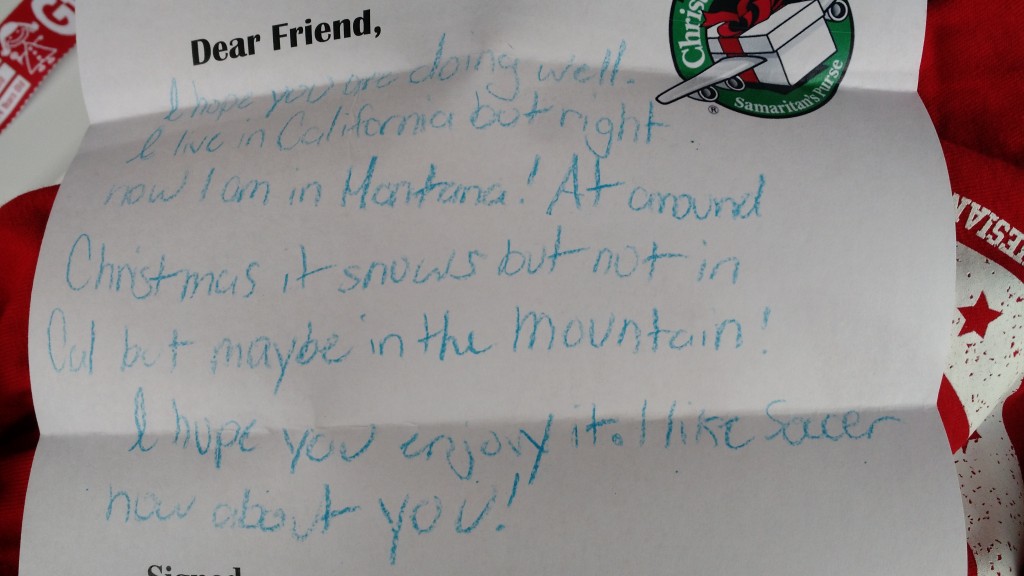 Dear Friend,
I hope you are doing well.
I live in California but right
now I am in Montana! At around
Christmas it snows but not in
Cal but maybe in the mountain!
I hope you enjoyy it. I like Sacer
how about you!
Signed
Chris
Samaritan's Purse
®
ESIAN